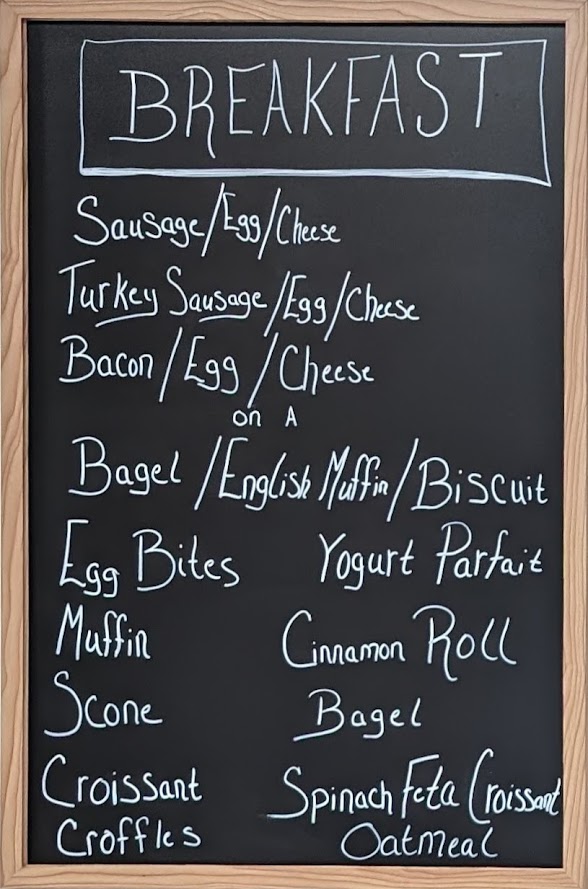 BREAKFAST
Sausage/Egg/Cheese
Turkey Sausage/Egg/Cheese
Bacon/Egg/Cheese
on A
Bagel/English Muffin/Biscuit
Egg Bites Yogurt Parfait
Muffin Cinnamon Roll
Scone Bagel
Croissant Spinach Feta Croissant
Croffles Oatmeal